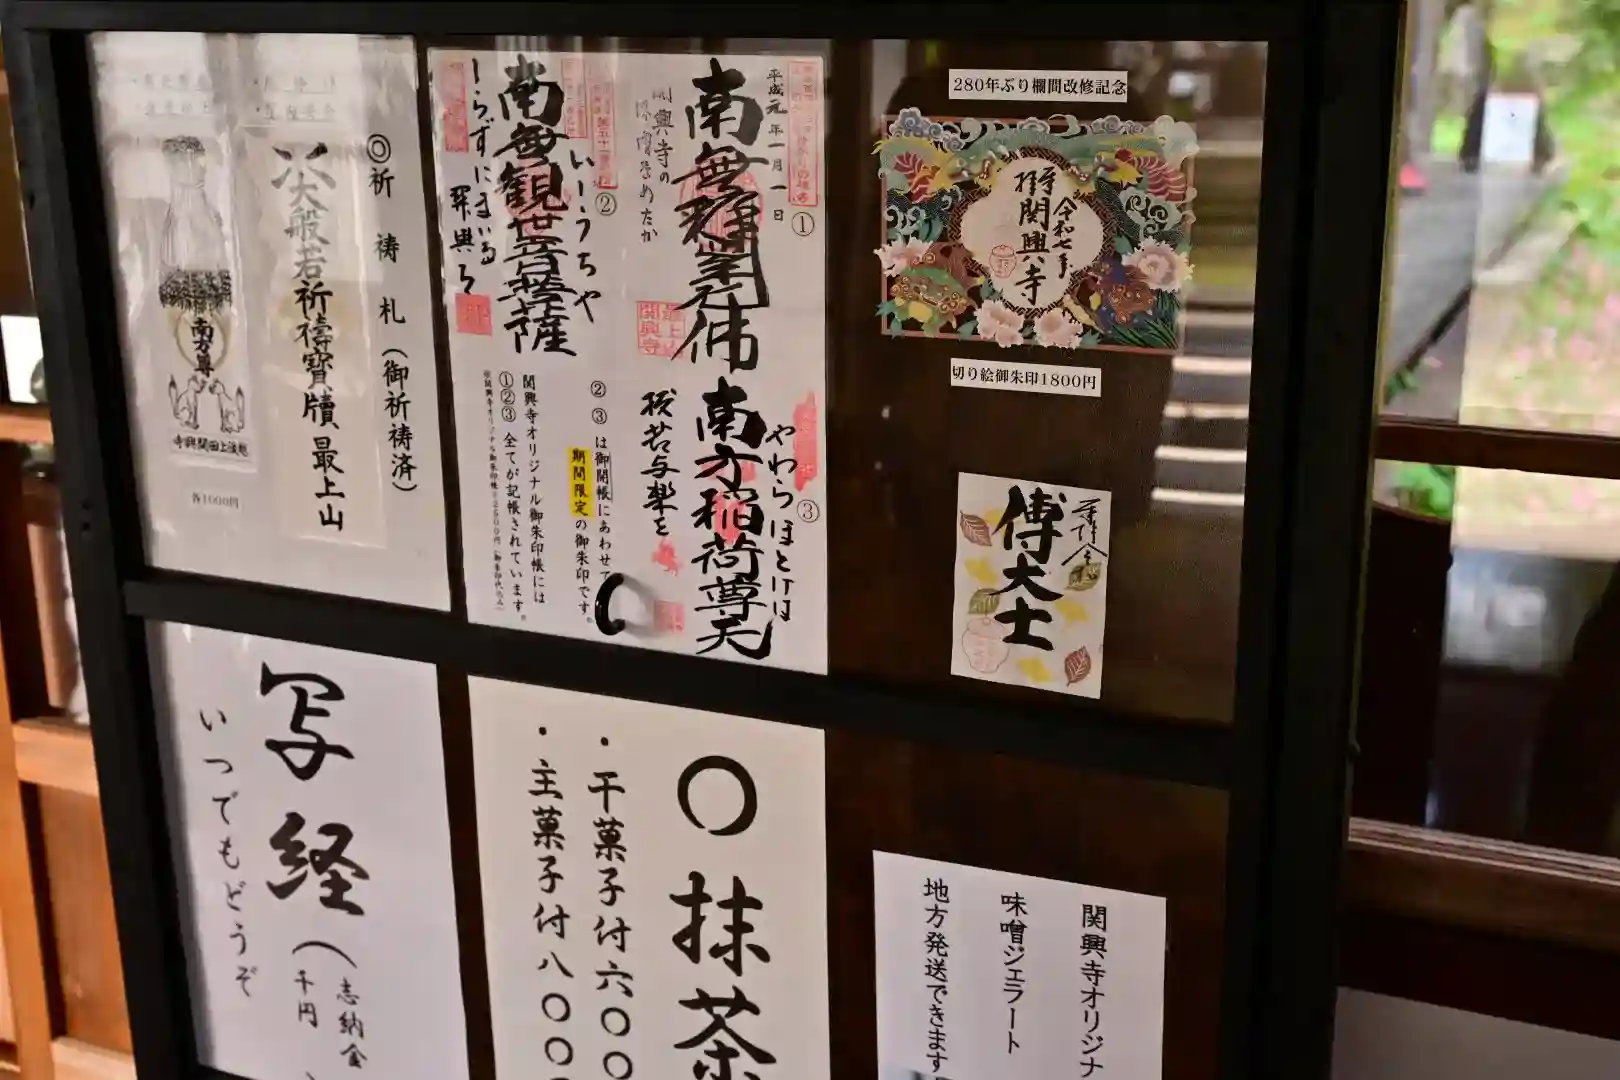 ◎祈祷札(御祈祷済)
大般若祈祷寶牘最上山
南方尊
越後上田関興寺
各1000円
平成元年一月一日
①
南無釋迦牟尼佛
関興寺の
味噌なめたか
最上山
関興寺
②
いーうちや
南無観世音菩薩
しらずにまいる
③
やわらほとけは
南方稲荷尊天
般若与楽を
②③は御開帳にあわせて
期間限定の御朱印です。
関興寺オリジナル御朱印帳には
①②③全てが記帳されています。
※関興寺オリジナル御朱印帳¥2500円(御朱印代込み)
280年ぶり欄間改修記念
令和七年
関興寺
切り絵御朱印1800円
傅大士
写経
(志納金
千円
いつでもどうぞ
〇抹茶
・干菓子付六〇〇
・主菓子付八〇〇
関興寺オリジナ
味噌ジェラート
地方発送できます